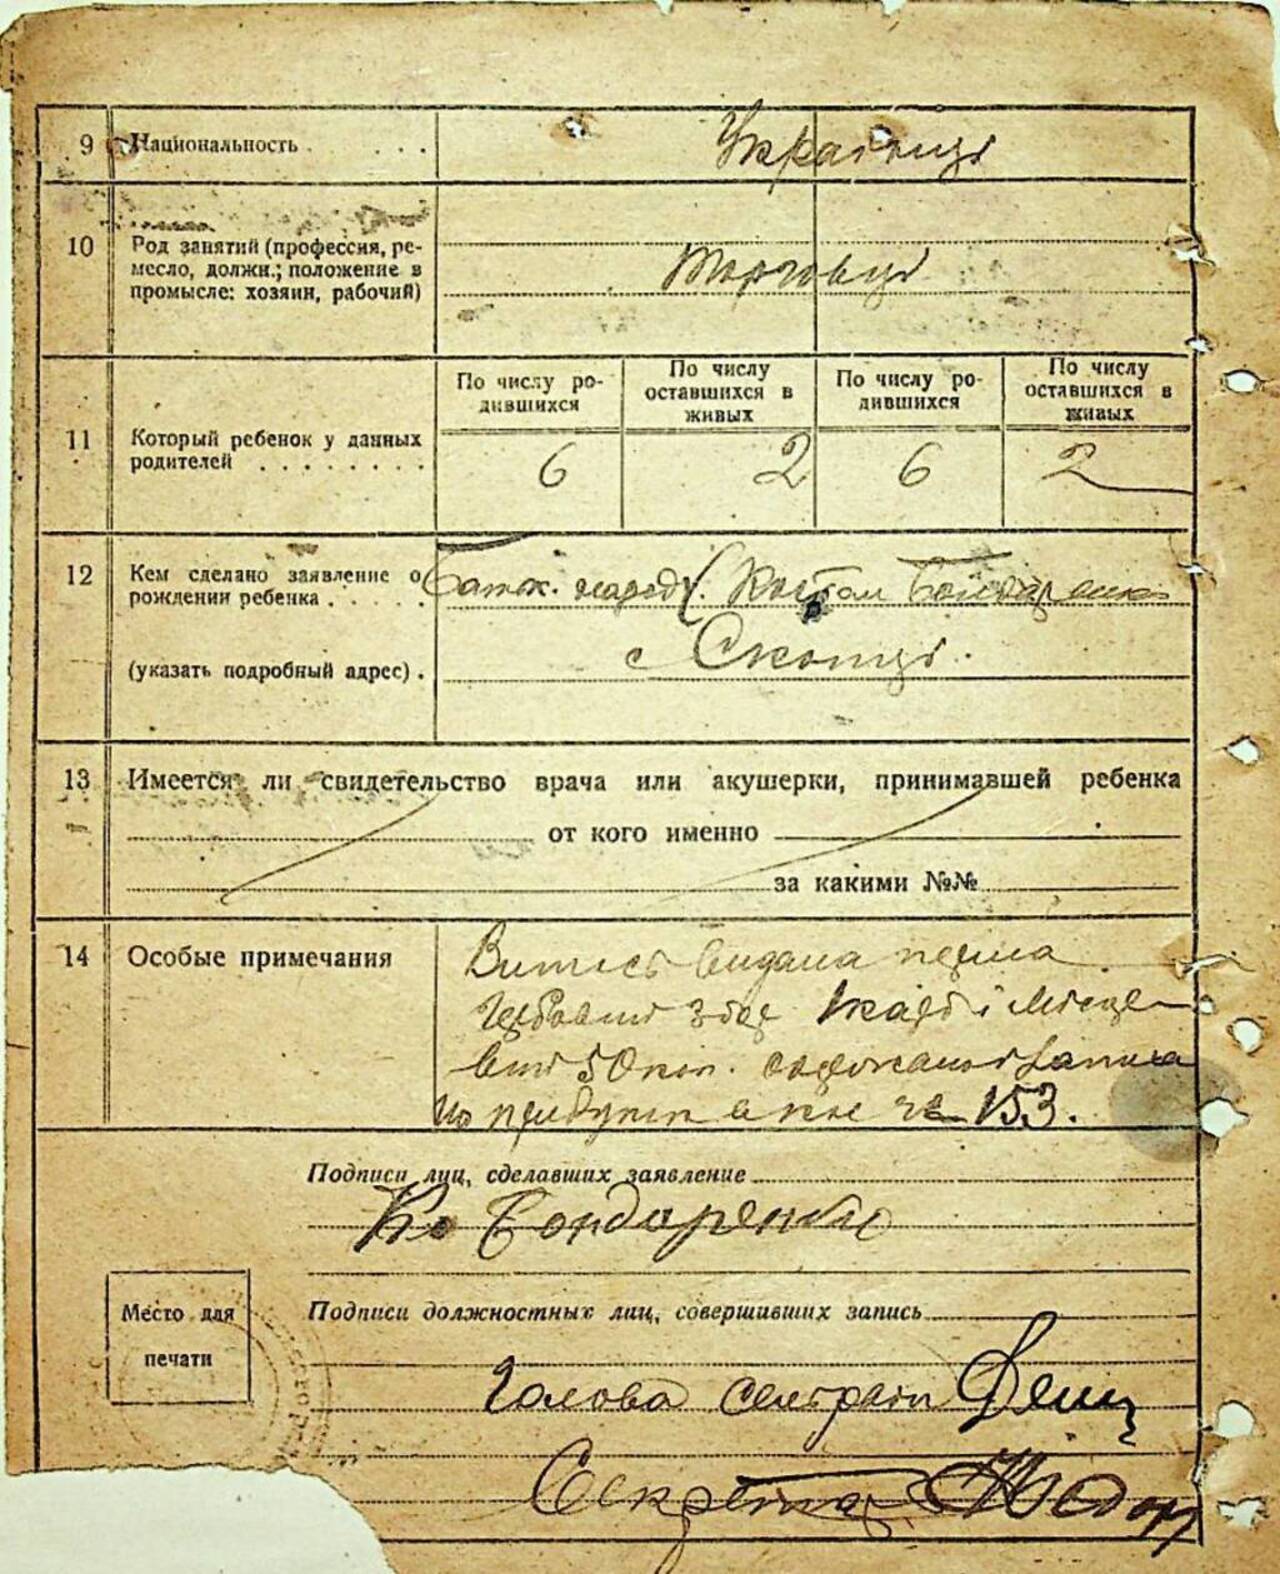 9 Национальность . . . . Українці
10 Род занятий (профессия, ре-
месло, должн.; положение в
промысле: хозяин, рабочий)
Торговці
По числу ро-
дившихся
По числу
оставшихся в
живых
По числу ро-
дившихся
По числу
оставшихся в
живых
11 Который ребенок у данных
родителей . . . . . . . .
6 2 6 2
12 Кем сделано заявление о
рождении ребенка . . . . .
Бондаренко
(указать подробный адрес) .
с Скопці.
13 Имеется ли свидетельство врача или акушерки, принимавшей ребенка
от кого именно
за какими №№
14 Особые примечания
видана перша
збор і Місце-
вий 50 коп.
по 153.
Подписи лиц, сделавших заявление
Бондаренко
Место для
печати
Подписи должностных лиц, совершивших запись
Голова сельради
Секретар